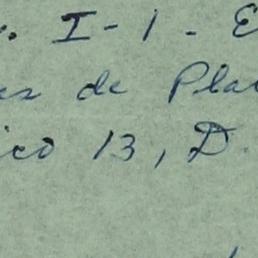 . I-1. E
es de Pla
ico 13, D.